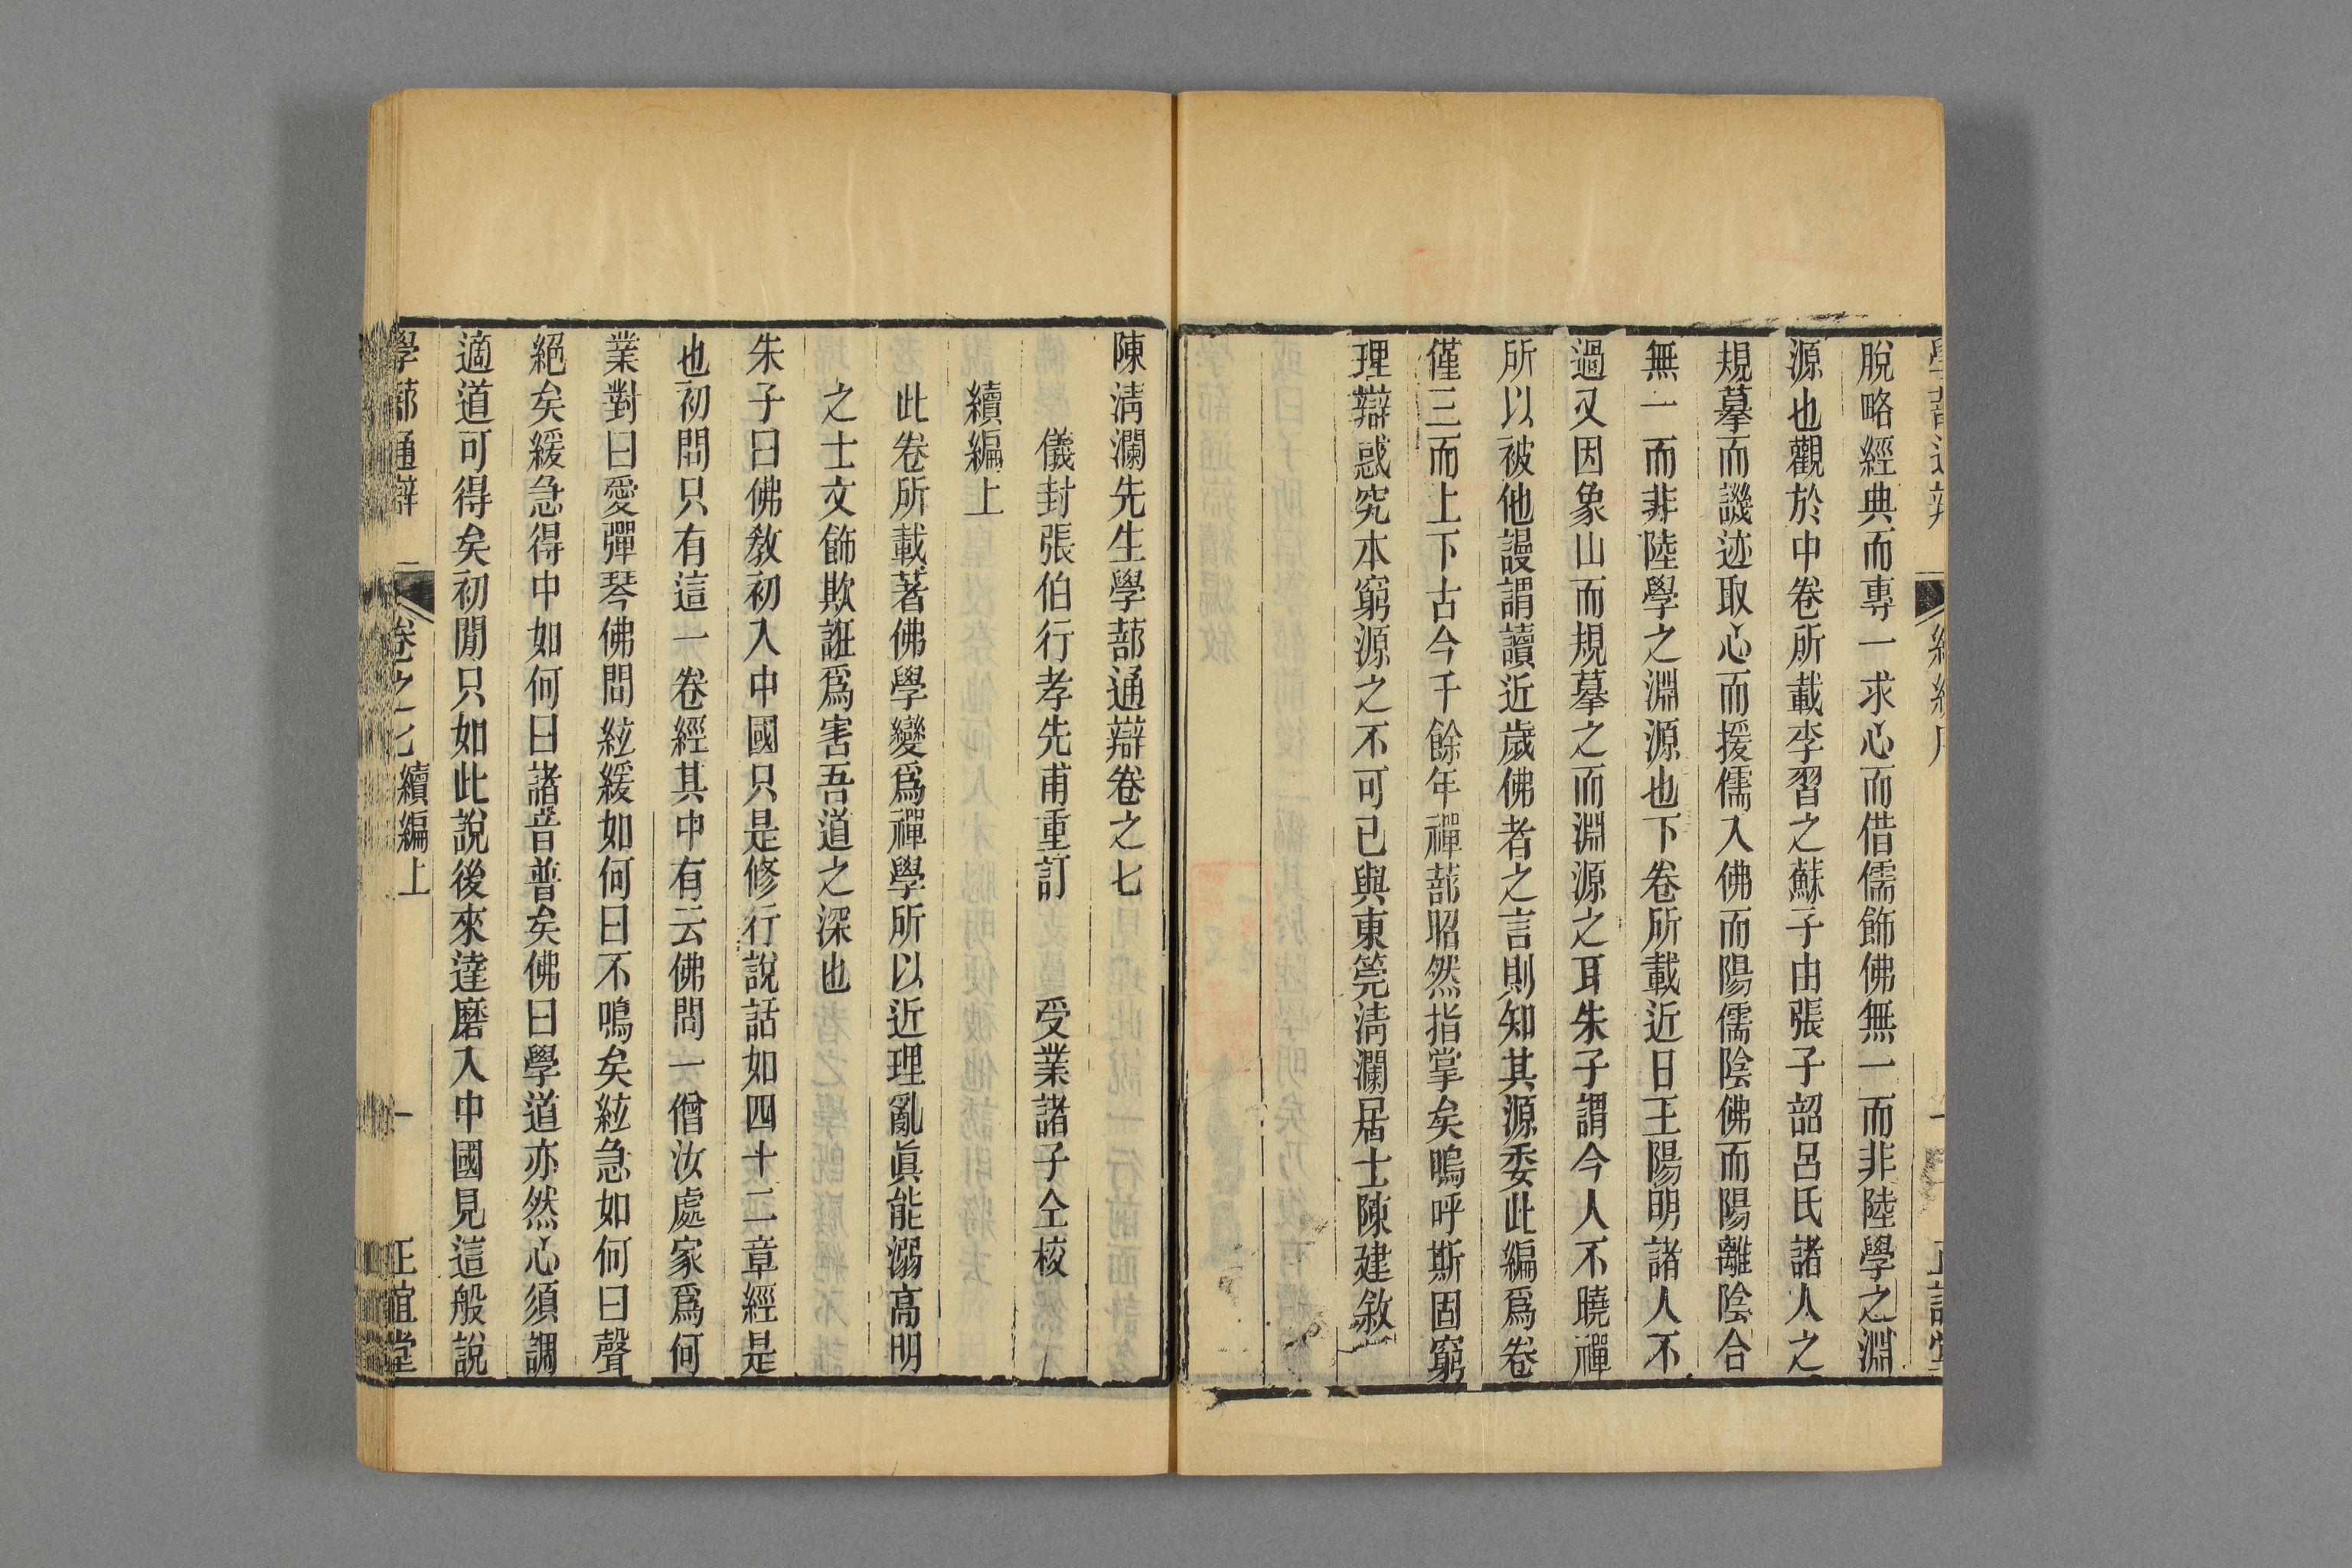 脫略經典而專一求心而借儒飾佛無一而非陸學之淵
源也觀於中卷所載李習之蘇子由張子韶呂氏諸人之
規摹而譏迹取心而援儒入佛而陽儒陰佛而陽離陰合
無一而非陸學之淵源也下卷所載近日王陽明諸人不
過又因象山而規摹之而淵源之耳朱子謂今人不曉禪
所以被他謾謂讀近歲佛者之言則知其源委此編爲卷
僅三而上下古今千餘年禪蔀昭然指掌矣嗚呼斯固窮
理辯惑究本窮源之不可已與東莞淸瀾居士陳建敘
陳淸瀾先生學蔀通辯卷之七
儀封張伯行孝先甫重訂 受業諸子仝校
續編上
此卷所載著佛學變爲禪學所以近理亂眞能溺高明
之士文飾欺誑爲害吾道之深也
朱子曰佛敎初入中國只是修行說話如四十二章經是
也初間只有這一卷經其中有云佛問一僧汝處家爲何
業對曰愛彈琴佛問絃緩如何曰不鳴矣絃急如何曰聲
絕矣緩急得中如何曰諸音普矣佛曰學道亦然心須調
適道可得矣初間只如此說後來達磨入中國見這般說
學蔀通辯 卷之七 續編上 一 正誼堂